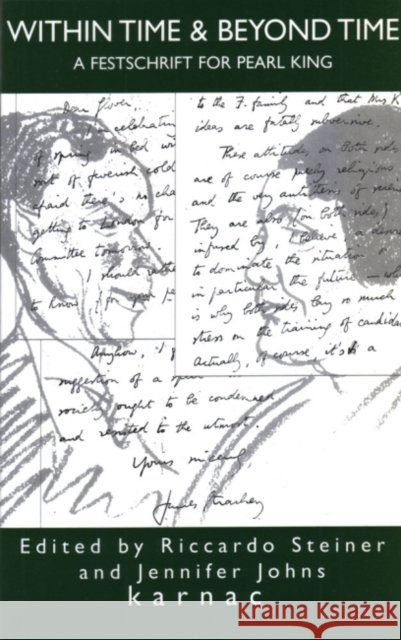 WITHIN TIME & BEYOND TIME
A FESTSCHRIFT FOR PEARL KING
Dear Glover,
I am celebrating
of spring in bed wi
sort of feverish cold
afraid there's no cha
getting to London for
Committee tomorrow.
I should rathe
to know
Anyhow, I
suggestion of a
society ought to be condemned
and resisted to the utmost.
Yours sincerely
James Strachey
to the F. family and that Mrs K
ideas are fatally subversive.
These attitudes on both sides
are of course purely religious
and the very antithesis of scien
They are also (on both sides)
infused by, I believe a desire
to dominate the situation
in particular the future — wh
is why both sides lay so much
stress on the training of candidat
Actually, of course, it's a
Edited by Riccardo Steiner
and Jennifer Johns
karnac